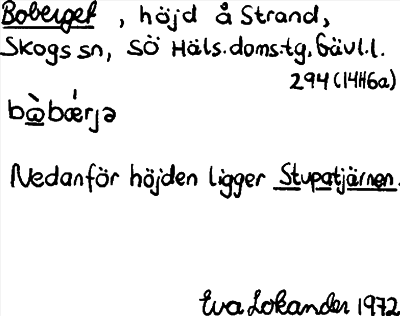 Boberget, höjd å Strand,
Skogs sn, SÖ Häls.doms.tg, Gävl.l.
294 (14H6a)
bɷ̀bǽrjə
Nedanför höjden ligger Stupatjärnen.
Eva Lokander 1972